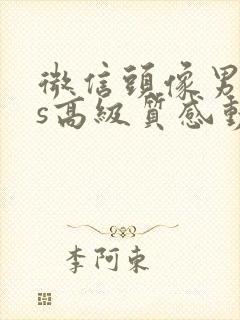 微信頭像男
s高級質感動
李阿東